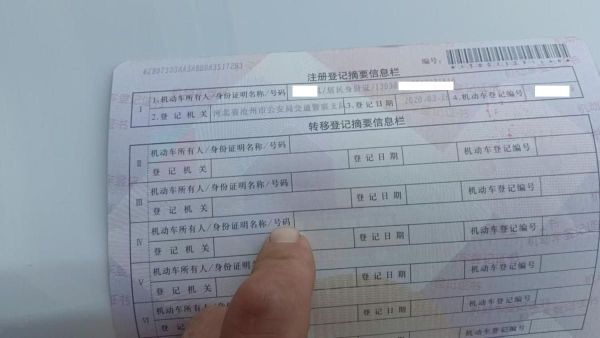 注册登记摘要信息栏
编号:
I
1.机动车所有人/身份证明名称/号码
/居民身份证/
2.登记机关
河北省沧州市公安局交通警察支队
3.登记日期
4.机动车登记编号
转移登记摘要信息栏
II
机动车所有人/身份证明名称/号码
登记机关
登记日期
机动车登记编号
III
机动车所有人/身份证明名称/号码
登记机关
登记日期
机动车登记编号
IV
机动车所有人/身份证明名称/号码
登记机关
登记日期
机动车登记编号
V
机动车所有人/身份证明名称/号码
登记机关
登记日期
机动车登记编号
VI
机动车所有人/身份
登记日期
机动车登记编号